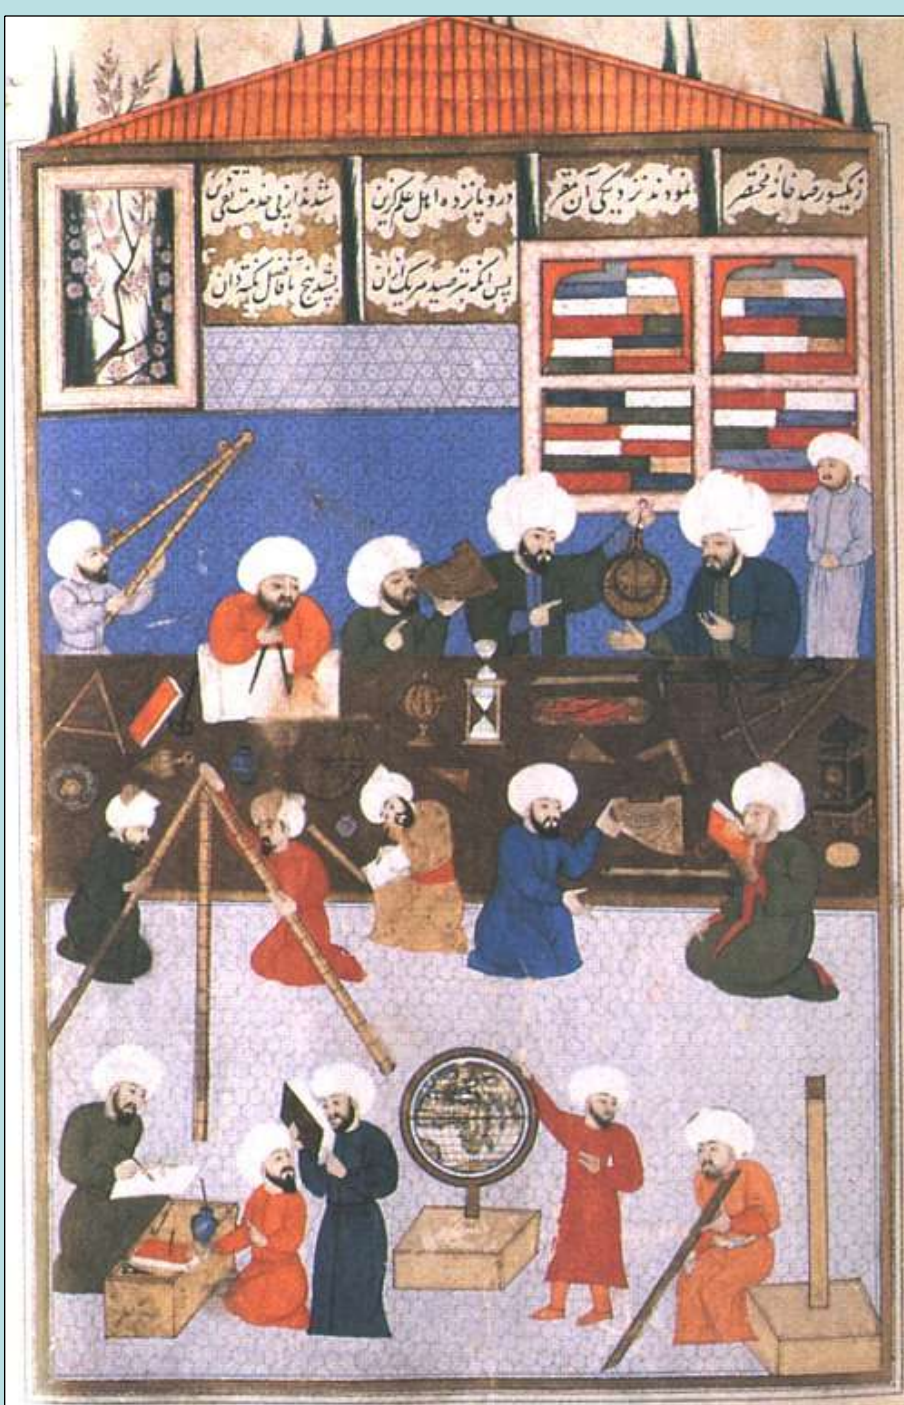 ز یکسو رصد خانهٔ مختصر نمودند نزدیکی آن مقر درو پانزده اهل علم گزین شدند از پی خدمت
پس آنکه بترصید هر یک از آن بشد پنج تا فاضل نکته دان